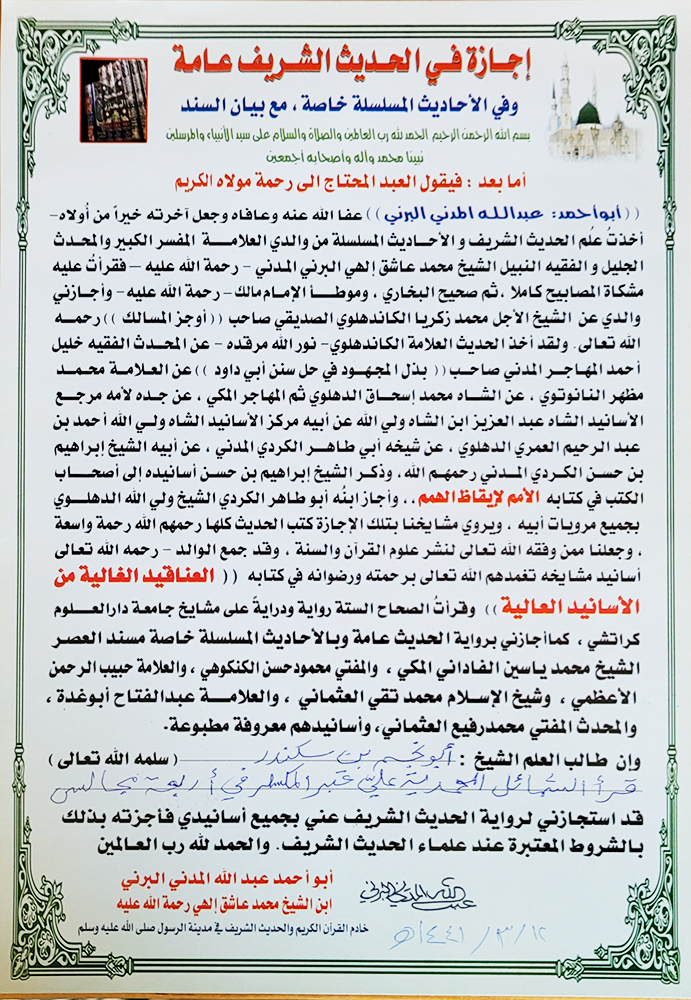 إجازة في الحديث الشريف عامة
وفي الأحاديث المسلسلة خاصة ، مع بيان السند
بسم الله الرحمن الرحيم الحمد لله رب العالمين والصلاة والسلام على سيد الأنبياء والمرسلين
نبينا محمد وآله وأصحابه أجمعين
أما بعد : فيقول العبد المحتاج الى رحمة مولاه الكريم
((أبوأحمد: عبدالله المدني البرني)) عفا الله عنه وعافاه وجعل آخرته خيراً من أولاه-
أخذتُ علُم الحديث الشريف والأحاديث المسلسلة من والدي العلامة المفسر الكبير والمحدث
الجليل والفقيه النبيل الشيخ محمد عاشق إلهي البرني المدني - رحمة الله عليه – فقرأتُ عليه
مشكاة المصابيح كاملا ، ثم صحيح البخاري ، وموطأ الإمام مالك- رحمة الله عليه- وأجازني
والدي عن الشيخ الأجل محمد زكريا الكاندهلوي الصديقي صاحب ((أوجز المسالك )) رحمه
الله تعالى. ولقد أخذ الحديث العلامة الكاندهلوي- نور الله مرقده - عن المحدث الفقيه خليل
أحمد المهاجر المدني صاحب(( بذل المجهود في حل سنن أبي داود )) عن العلامة محمد
مظهر النانوتوي ، عن الشاه محمد إسحاق الدهلوي ثم المهاجر المكي ، عن جده لأمه مرجع
الأسانيد الشاه عبد العزيز ابن الشاه ولي الله عن أبيه مركز الأسانيد الشاه ولي الله أحمد بن
عبد الرحيم العمري الدهلوي ، عن شيخه أبي طاهر الكردي المدني ، عن أبيه الشيخ إبراهيم
بن حسن الكردي المدني رحمهم الله، وذكر الشيخ إبراهيم بن حسن أسانيده إلى أصحاب
الكتب في كتابه الأمم لإيقاظ الهمم ، ، وأجاز ابنُه أبو طاهر الكردي الشيخ ولي الله الدهلوي
بجميع مرويات أبيه ، ويروي مشايخنا بتلك الإجازة كتب الحديث كلها رحمهم الله رحمة واسعة
، وجعلنا ممن وفقه الله تعالى لنشر علوم القرآن والسنة ، وقد جمع الوالد - رحمه الله تعالى
أسانيد مشايخه تغمدهم الله تعالى برحمته ورضوانه في كتابه (( العناقيد الغالية من
الأسانيد العالية )) وقرأتُ الصحاح الستة رواية ودراية على مشايخ جامعة دارالعلوم
كراتشي ، كماأجازني برواية الحديث عامة وبالأحاديث المسلسلة خاصة مسند العصر
الشيخ محمد ياسين الفاداني المكي ، والمفتي محمودحسن الكنكوهي ، والعلامة حبيب الرحمن
الأعظمي ، وشيخ الإسلام محمد تقي العثماني ، والعلامة عبدالفتاح أبوغدة ،
والمحدث المفتي محمدرفيع العثماني، وأسانيدهم معروفة مطبوعة.
وإن طالب العلم الشيخ : أبونجم بن سكندر (سلمه الله تعالى)
قرأ الشمائل المحمدية عليّ في أربعة مجالس
قد استجازني لرواية الحديث الشريف عني بجميع أسانيدي فأجزته بذلك
بالشروط المعتبرة عند علماء الحديث الشريف. والحمد لله رب العالمين
أبو أحمد عبد الله المدني البرني
ابن الشيخ محمد عاشق إلهي رحمة الله عليه
خادم القرآن الكريم والحديث الشريف في مدينة الرسول صلى الله عليه وسلم
عبدالله المدني البرني
١٢ / ٣ / ١٤٤١هـ